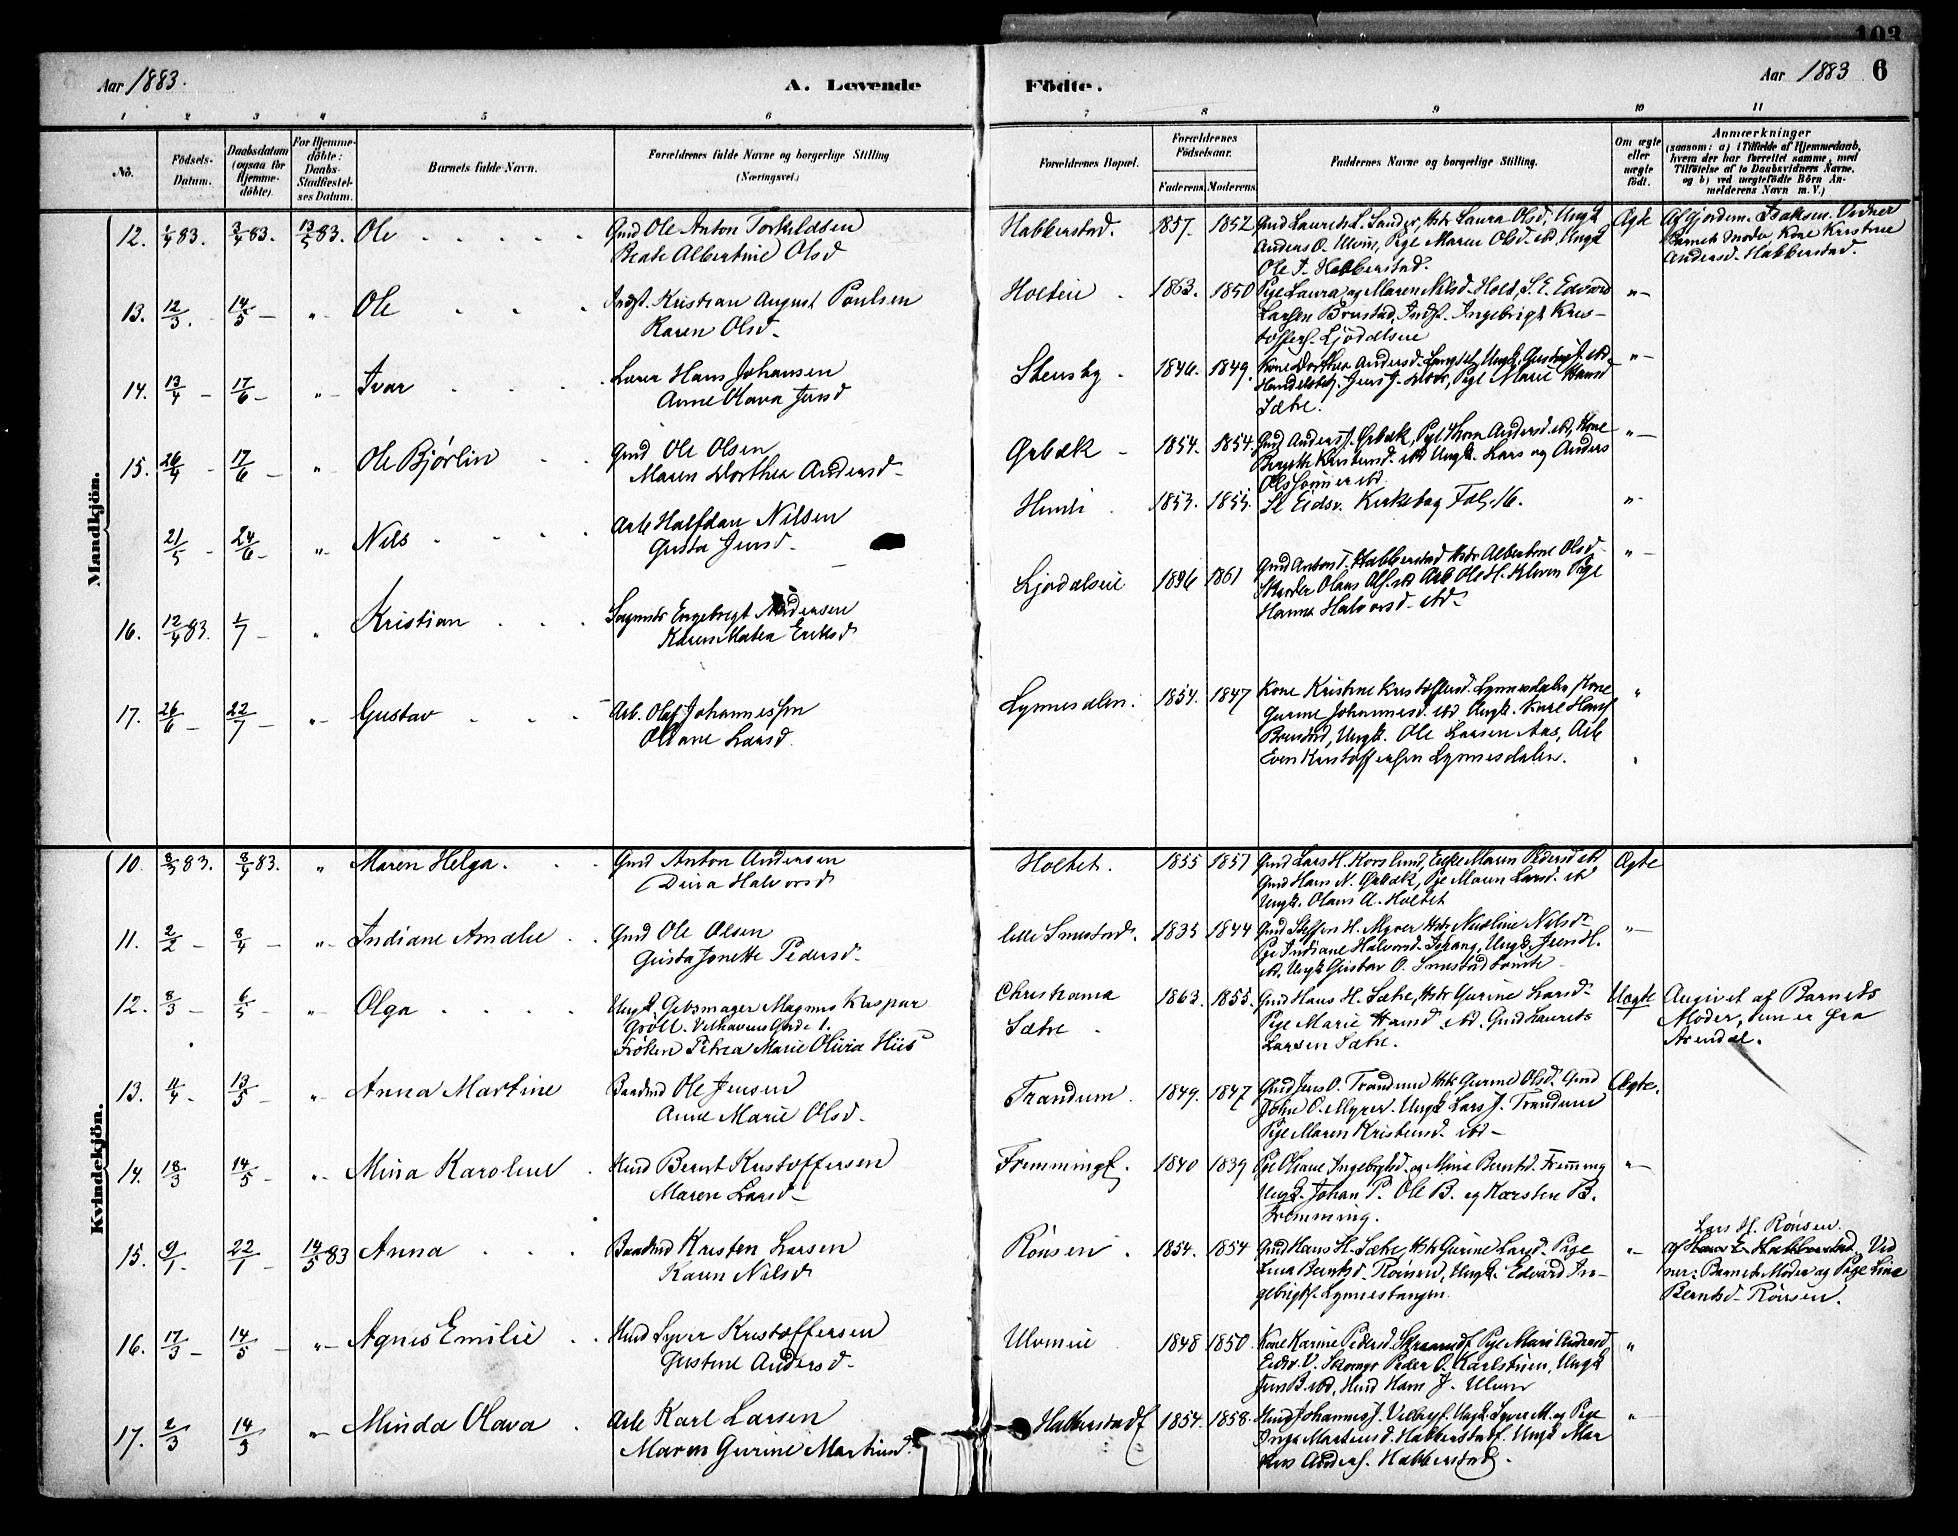 103
Aar 1883.
A. Levende
Födte.
Aar 1883
6
1 2 3 4 5 6 7 8 9 10 11
No.
Födsels-Datum.
Daabsdatum (ogsaa for Hjemmedöbte).
For Hjemmedöbte: Daabs-Stadfæstelses Datum.
Barnets fulde Navn.
Forældrenes fulde Navne og borgerlige Stilling (Næringsvei.)
Forældrenes Bopæl.
Forældrenes Födselsaar.
Faderens. Moderens.
Faddernes Navne og borgerlige Stilling.
Om ægte eller uægte födt.
Anmærkninger
(saasom: a) i Tilfælde af Hjemmedaab, hvem der har forrettet samme, med Tilföielse af to Daabsvidners Navne, og b) ved uægtefödte Börn Anmelderens Navn m. V.)
Mandkjön.
12. 1/4 83. 3/4 83. 13/5 83. Ole
Gmd Ole Anton Torkildsen
Beate Albertine Olsd
Habberstad. 1857. 1852
Gmd Laurits L. Sander, Hstr Laura Olsd, Ungk
Anders O. Ulvin, Pige Maren Olsd. ibd, Ungk
Ole T. Habberstad.
Ægte
Af Gjordem. Isaksen. Vidner
Barnets Moder, Kone Kristine
Andersd. Habberstad.
13. 12/3. 14/5 - "- Ole
Indst. Kristian August Paulsen
Karen Olsd.
Holteie. 1863. 1850
Pige Laura og Maren Nilsd. Holt, S. E. Edvard
Larsen Brustad, Indst. Ingebrigt Kris-
toffers. Ljödalseie
"-
14. 13/4 - 17/6 - "- Ivar
Lærer Hans Johansen
Anne Olava Jensd
Stensby. 1846. 1849.
Kone Dorthea Andersd. Ungk. Gustav J. ibd.
Handelsbetj. Jens J. Pige Marie Hansd
Sætre.
"-
15. 26/4 - 17/6 - "- Ole Bjørlin
Gmd Ole Olsen
Maren Dorthea Andersd.
Ørbæk - 1854. 1854.
Gmd Anders J. Ørbæk, Pige Thora Andersd. ibd, Kone
Bergitte Kristensd. ibd Ungk. Lars og Anders
Olssönner ibd.
"-
21/5 - 24/6 - "- Nils
Arb Halfdan Nilsen
Gusta Jensd.
Hemli. 1853. 1855.
Se Eidsv. Kirkebog Fol. 16.
"-
16. 12/4 83. 1/7 - " Kristian
Sagmstr Engebrigt Andersen
Karen Mathea Eriksd
Ljödalseie 1896 1861
Gmd Anton T. Habberstad Hstr Albertine Olsd.
Skræder Olaus Ols. ibd Arb Ole H. Kleven Pige
Hanna Halvorsd. ibd.
"-
17. 26/6 - 22/7 - "- Gustav
Arb. Olaf Johannessen
Oliane Larsd.
Lynnesdalen. 1854. 1847
Kone Kristine Kristoffersd. Lynnesdalen, Kone
Gurine Johannesd. ibd Ungk. Karl Hans
Brustad, Ungk. Ole Larsen Aas, Arb
Even Kristoffersen Lynnesdalen.
"
Kvindekjön.
10. 8/3 83. 8/4 83. " Maren Helga.
Gmd Anton Andersen
Dina Halvorsd
Holtet. 1855 1857
Gmd Lars H. Korslund, Enke Maren Pedersd ibd
Gmd Hans N. Ørbæk, Pige Maren Larsd. ibd
Ungk. Olaus A. Holtet
Ægte
11. 2/2 - 8/4 - "- Indiane Amalie
Gmd Ole Olsen
Gusta Jonette Pedersd.
lille Smestad. 1835 1844
Gmd Steffen H. Myrer Hstr Nicoline Nilsd.
Pige Indiane Halvorsd. Ungk Jens H.
ibd. Ungk Gustav O. Smestad
"-
12. 8/3 - 6/5 - "- Olga
Ungk. Gibsmager Magnus Kaspar
Gröll. Velhavens Gade 1.
Frøken Petrea Marie Olivia Hiis
Christiania
Sætre. 1863. 1855.
Gmd Hans H. Sætre, Hstr Gurine Larsd.
Pige Marie Hansd. ibd. Gmd Laurits
Larsen Sætre.
Uægte
Angivet af Barnets
Moder, den er fra
Arendal.
13. 11/4 - 13/5 - "- Anna Martine
Baadmd Ole Jensen
Anne Marie Olsd.
Trandum. 1849. 1847
Gmd Jens O. Trandum Hstr Gurine Olsd. Gmd
John O. Myrer. Ungk Lars J. Trandum
Pige Maren Kristensd. ibd-
Ægte.
14. 18/3 14/5 - "- Mina Karoline
Hmd Bernt Kristoffersen
Maren Larsd-
Fremmingf. 1840 1839
Pige Oliane Ingebrigtsd. og Mina Berntsd. Fremming
Ungk. Johan P. Ole B. og Karsten B.
Fremming.
"-
15. 9/1. 22/1 - 14/5 83 Anna
Baadmd Kristen Larsen
Karen Nilsd
Rönsen. 1854. 1854
Gmd Hans H. Sætre, Hstr Gurine Larsd. Pige
Lina Berntsd. Rönsen, Ungk. Edvard In-
gebrigts. Lynnestangen.
"-
Lars H. Rönsen.
Af Habberstad. Vid
ner: Barnets Moder og Pige Lina
Berntsd. Rönsen.
16. 17/3 - 14/5 - "- Agnes Emilie
Hmd Syver Kristoffersen
Gustine Andersd.
Ulvineie 1848 1850.
Kone Karine Pedersd. Pige Mari Andersd
Eidsv. V. Peder O. Karlstuen, Ungk
Jens B. ibd, Hmd Hans J. Ulvin
"
17. 2/3 14/5 "- Minda Olava
Arb Karl Larsen
Maren Gurine Martinsd.
Habberstadf. 1854. 1858.
Hmd Johannes J. Ungk. Syver M. og Pige
Inga Martinsd. Habberstadf. Ungk Mar
kus Anders. Habberstad.
"-